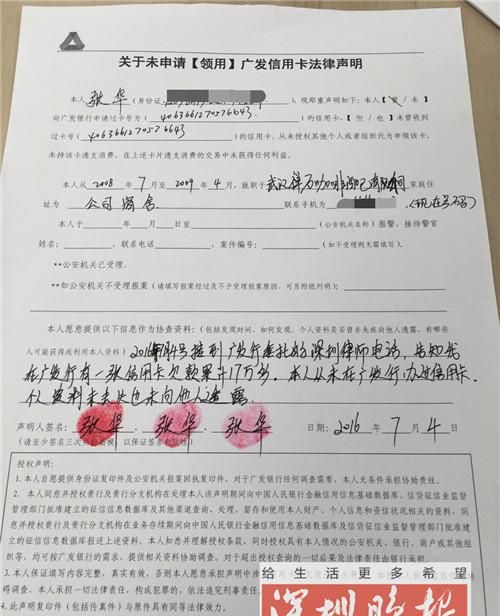 关于未申请【领用】广发信用卡法律声明
本人 张华 (身份证 ),现郑重声明如下:本人【曾/未】
向广发银行申请过卡号为( 4063661270576643 )的信用卡.【但/也】未曾收到
过卡号( 4063661270576643 )的信用卡.从未授权其他个人或者组织代为申领该卡。
未持该卡透支消费。在上述卡片透支消费的交易中未获得任何利益。
本人从 2008 年 7 月至 2009 年 4 月,就职于 武汉 家庭住
址为 公司宿舍 联系手机为 (现在号码)
本人于 年 月 日至 (公安机关名称)报警,接待警官
姓名: ,联系电话 ,案件编号: (如不受理则无需填写)。
**公安机关已受理。
**如公安机关不受理报案(请填写报案经过及不予受理报案原因,可另附纸列明):
本人愿意提供以下信息作为协查资料:(包括发现时间、如何发现,个人资料是否曾丢失或向他人透露,有哪些
人可能获得或利用本人资料) 2016年 4号接到广发行委托的深圳律师电话,告知我
在广发行有一张信用卡欠款累计17万多。本人从未在广发行办过信用卡.
个人资料未丢失也未向他人透露.
声明人签名: 张华 . 张华 . 张华 日期: 2016 年 7 月 4 日
(请至少签名三次并 ,以保证签名 )
授权声明:
1.本人自愿提供身份证复印件及公安机关报案回执复印件,对于广发银行任何调查需要,本人无条件承担协助责任。
2.本人同意并授权贵行及贵行分支机构在处理本人该声明期间向中国人民银行金融信用信息基础数据库,信贷征信业监督
管理部门批准建立的征信信息数据库及其他渠道查询、处理、留存和使用本人财产、个人信息和资信状况相关的资料,同
意并授权贵行及贵行分支机构在业务存续期间向中国人民银行金融信用信息基础数据库及信贷征信业监督管理部门批准建
立的征信信息数据库报送上述资料。本人知悉并理解授权条款,同时授权具有本人情况的公安机关、银行、商户或其他组
织等,均可按广发银行的需求,提供相关资料协助调查。对于超出授权查询的一切后果及法律责任由银行承担。
3.本人保证填写内容完整,真实有效,否则本人愿意承担声明中涉
碍调查,本人承担一切法律责任,构成犯罪的,依法追究刑事责任
4.此声明复印件(包括传真件)与原件具有同等法律效力。
给生活更多希望
深圳晚报